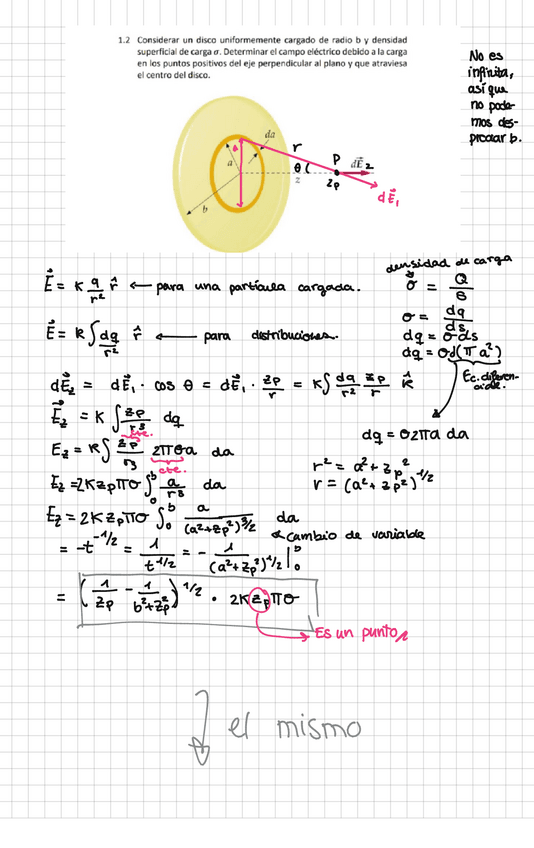 1.2 Considerar un disco uniformemente cargado de radio b y densidad
superficial de carga σ. Determinar el campo eléctrico debido a la carga
en los puntos positivos del eje perpendicular al plano y que atraviesa
el centro del disco.
No es
infinita,
así que
no pode-
mos des-
preciar b.
da
r
P
dE⃗z
a
a
θ
z
zp
dE⃗₁
b
E⃗ = K q/r² r̂ ← para una partícula cargada.
densidad de carga
σ = Q/S
E⃗ = K ∫ dq/r² r̂ ← para distribuciones.
σ = dq/ds
dq = σ ds
dq = σ d(π a²)
Ec. diferen-
ciable.
dE⃗z = dE⃗₁ · cos θ = dE⃗₁ · zp/r = K ∫ dq/r² zp/r k̂
E⃗z = K ∫ zp/r³ dq
dq = σ2πa da
cte.
Ez = K ∫ zp/r³ 2πσa da
cte.
r² = a² + zp²
r = (a² + zp²)^1/2
Ez = 2K zp πσ ∫₀ᵇ a/r³ da
Ez = 2K zp πσ ∫₀ᵇ a/(a²+zp²)^3/2 da
cambio de variable
= -t^-1/2 = 1/t^1/2 = - 1/(a²+zp²)^1/2 |₀ᵇ
= (1/zp - 1/b²+zp²)^1/2 · 2K zp πσ
Es un punto
el mismo